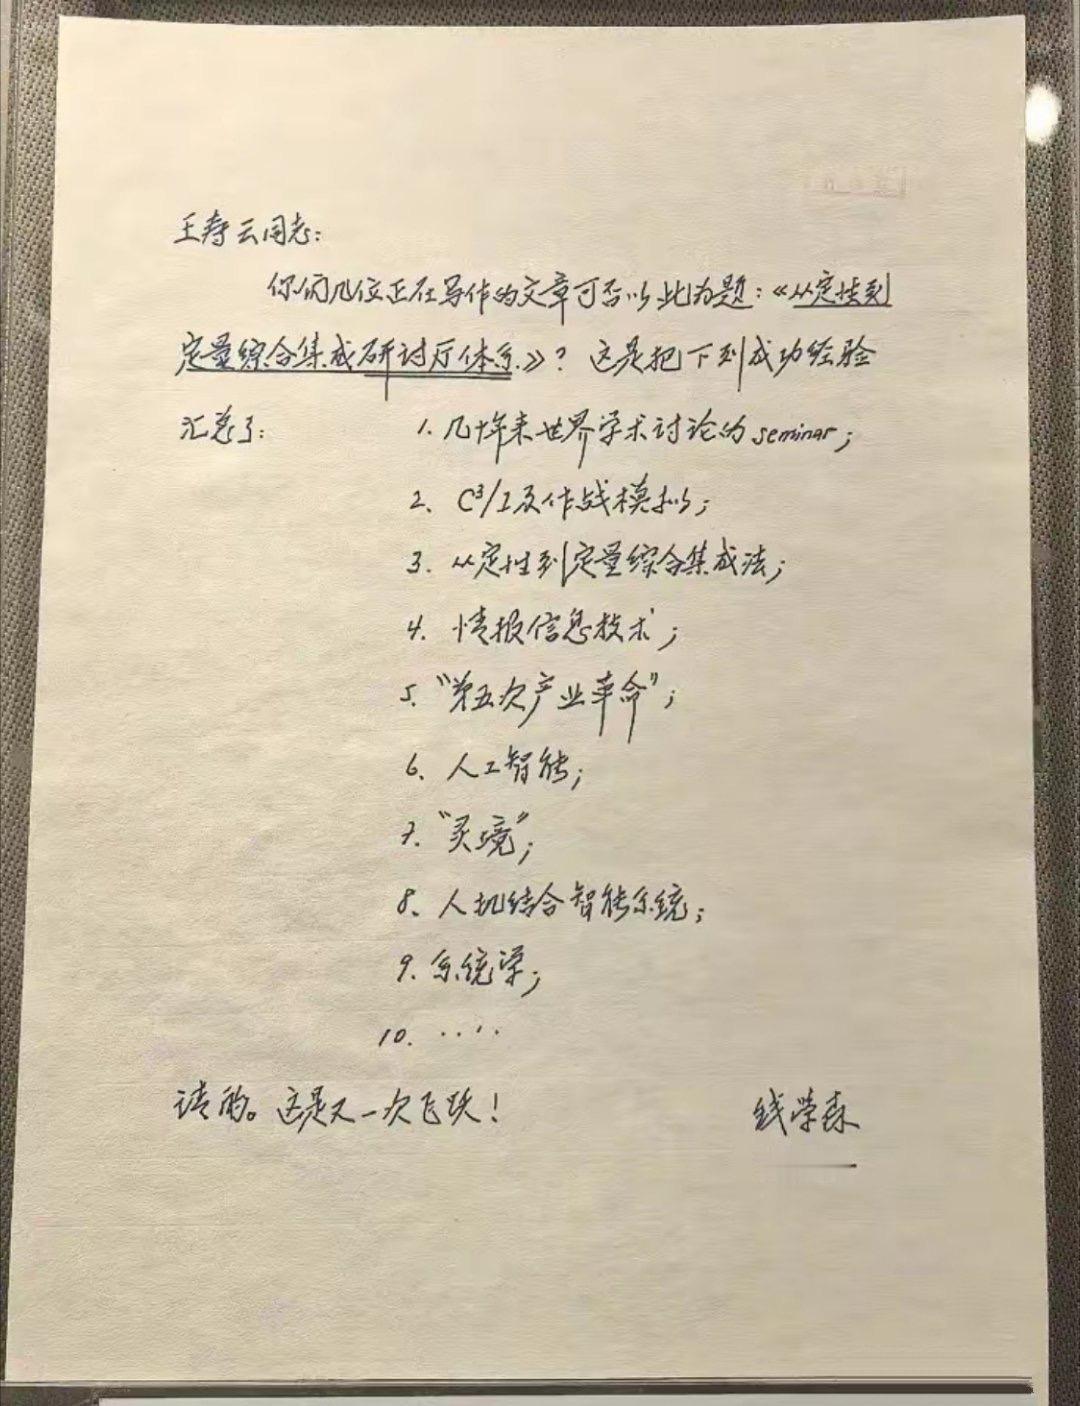 王寿云同志：
你们几位正在写作的文章可否以此为题：《从定性到
定量综合集成研讨厅体系》？这是把下列成功经验
汇总了：1. 几十年来世界学术讨论的 seminar；
2、C³/I及作战模拟；
3. 从定性到定量综合集成法；
4. 情报信息技术；
5. “第五次产业革命”；
6、人工智能；
7. “灵境”；
8、人机结合智能系统；
9. 系统学；
10. ····
请酌。这是又一次飞跃！ 钱学森